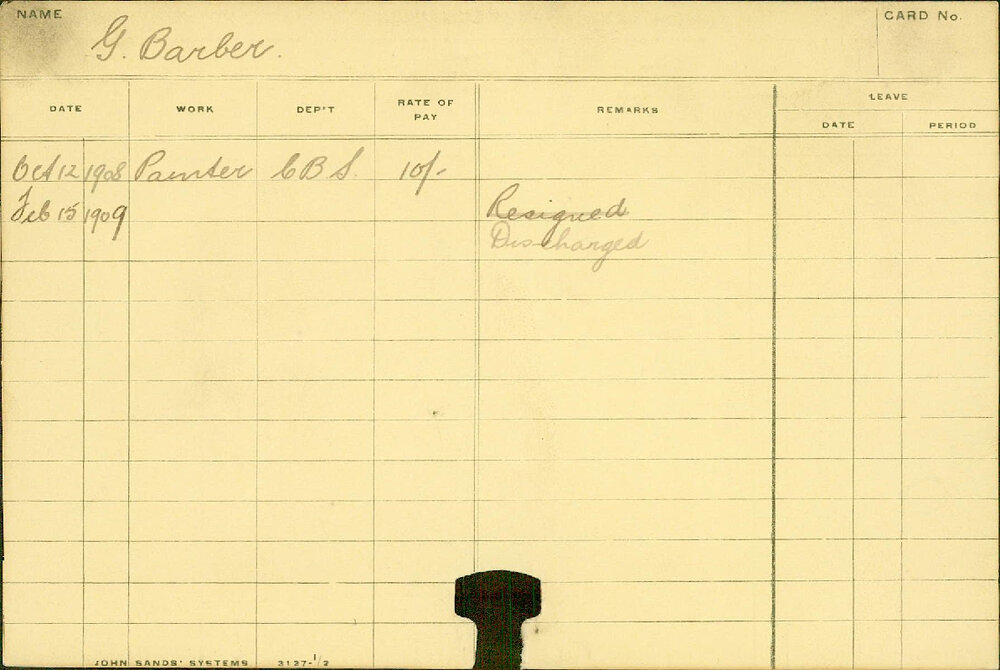 NAME CARD No.
G. Barber.
DATE WORK DEP'T RATE OF PAY REMARKS LEAVE
DATE PERIOD
Oct 12 1908 Painter C B S. 10/-
Feb 15 1909 Resigned
Discharged
JOHN SANDS' SYSTEMS 3127-1/2